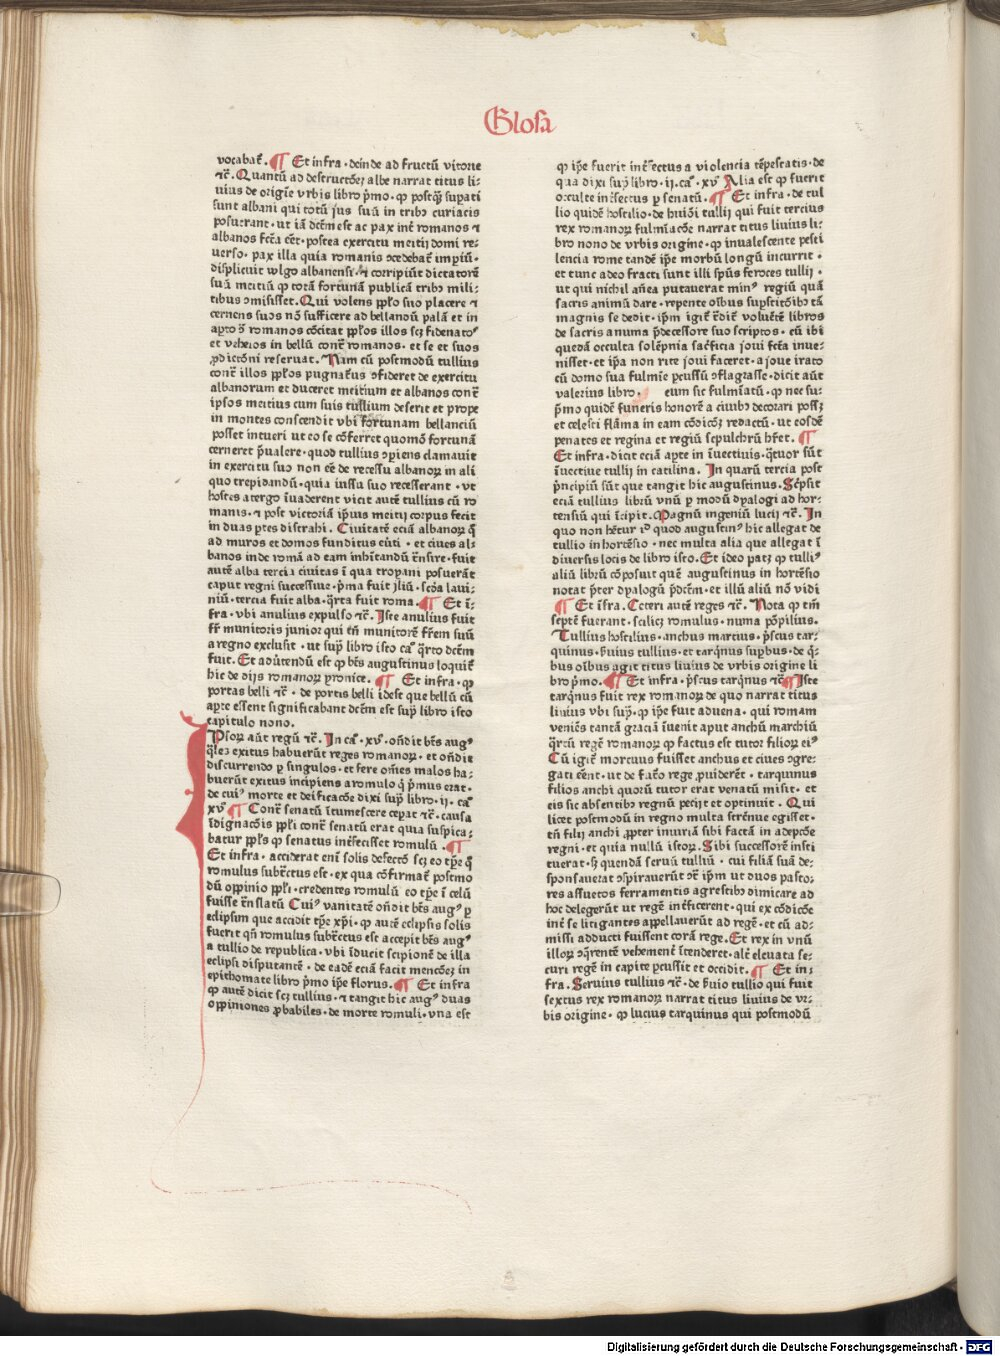 Glosa
vocabat᷒. ¶ Et infra · deinde ad fructū vitorie
⁊c̄. Quantū ad destructōeꝫ albe narrat titus li⸗
uius de origīe vrbis libro p̄mo · ꝙ postq̄ꝫ supati
sunt albani qui totū jus suū in tribꝰ curiacis
posuerant · ut iā dc̄m est ac pax int̄ romanos ⁊
albanos fc̄ta eēt · postea exercitu meitij domi re⸗
uerso · pax illa quia romanis ɔcedebat᷒ impiū ·
displicuit wlgo albanensi · ⁊ corripiūt dictatorē
suū meitiū ꝙ totā fortunā publicā tribꝰ mili⸗
tibus ɔmisisset. Qui volens pp̄lo suo placere ⁊
cernens suos nō sufficere ad bellandū palā et in
apto ɔ̄ romanos cōcitat pp̄los illos scꝫ fidenatoꝰ
et veheios in bellū cont̄ romanos · et se et suos
ꝓdictōni reseruat. Nam cū postmodū tullius
cont̄ illos pp̄los pugnatꝰus ɔfideret de exercitu
albanorum et duceret meitium et albanos cont̄
ipsos meitius cum suis tullium deserit et prope
in montes conscendit vbi fortunam bellanciū
posset intueri ut eo se cōferret quomō fortunā
cerneret p̄ualere · quod tullius ɔpiens clamauit
in exercitu suo non eē de recessu albanoꝝ in ali
quo trepidandū · quia iussu suo recesserant · vt
hostes a tergo īuaderent vicit autē tullius cū ro
manis · ⁊ post victoriā ip̄ius meitij corpus fecit
in duas p̄tes distrahi. Ciuitatē eciā albanoꝝ q̄
ad muros et domos funditus eūti · et ciues al⸗
banos inde romā ad eam inhītandū t̄nsire · fuit
autē alba tercia ciuitas ī qua troyani posuerāt
caput regni successiue · p̄ma fuit yliū · scd̄a laui⸗
niū · tercia fuit alba · q̄rta fuit roma. ¶ Et ī⸗
fra · vbi anulius expulso ⁊c̄. Iste anulius fuit
fr̄ munitoris junior qui tn̄ munitorē fr̄em suū
a regno exclusit · ut suꝑ libro isto ca° q̄rto dc̄m
fuit. Et aduītendū est ꝙ bt̄s augustinus loquit᷒
hic de dijs romanoꝝ yronice. ¶ Et infra · ꝙ
portas belli ⁊c̄ · de portis belli idest que bellū cū
apte essent significabant dc̄m est suꝑ libro isto
capitulo nono.
Ipsoꝝ aūt regū ⁊c̄. In ca° · xv° · on̄dit bt̄s augꝰ
q̄leꝫ exitus habuerūt reges romanoꝝ · et on̄dit
discurrendo ꝑ singulos · et fere om̄es malos ha⸗
buerūt exitus incipiens a romulo q̄ p̄mus erat ·
de cuiꝰ morte et deificacōe dixi suꝑ libro · ij · ca°
xv° ¶ Cont̄ senatū ītumescere cepat ⁊c̄ · causa
īdignacōis pp̄li cont̄ senatū erat quia suspica⸗
batur pp̄ls ꝙ senatus int̄fecisset romulū · ¶
Et infra · acciderat enī solis defectꝰ scꝫ eo tp̄e q̄
romulus subt̄ctus est · ex qua cōfirmat᷒ postmo
dū oppinio pp̄li · credentes romulū eo tp̄e ī celū
fuisse t̄nslatū Cuiꝰ vanitatē on̄dit bt̄s augꝰ ꝑ
eclipsim que accidit tp̄e xp̄i · ꝙ autē eclipsis solis
fuerit qn̄ romulus subt̄ctus est accepit bt̄s augꝰ
a tullio de republica · vbi īducit scipionē de illa
eclipsi disputantē · de eadē eciā facit mencōeꝫ in
epithomate libro p̄mo ip̄e florus. ¶ Et infra
ꝙ autē dicit scꝫ tullius · ⁊ tangit hic augꝰ duas
oppiniones ꝓbabiles · de morte romuli · vna est
ꝙ ip̄e fuerit int̄fectus a violencia tēpestatis · de
qua dixi suꝑ libro · ij · ca° · xv° Alia est ꝙ fuerit
occulte int̄fectus ꝑ senatū. ¶ Et infra · de tul
lio quidē hostilio · de huiꝰōi tullij qui fuit tercius
rex romanoꝝ fulmīacōe narrat titus liuius li⸗
bro nono de vrbis origine · ꝙ inualescente pesti
lencia rome tandē ip̄e morbū longū incurrit ·
et tunc adeo fracti sunt illi sp̄us feroces tullij ·
ut qui nichil an̄ea putauerat minꝰ regiū quā
sacris animū dare · repente oībus suꝑstitōibꝰ tā
magnis se dedit · ip̄m igit᷒ t̄dit᷒ voluētē libros
de sacris a numa p̄decessore suo scriptos · cū ibi
quedā occulta solēpnia sac̄ficia joui fc̄ta inue⸗
nisset · et ip̄a non rite joui faceret · a joue irato
cū domo sua fulmīe p̄cussū ɔflagrasse · dicit aūt
valerius libro · eum sic fulmīatū · ꝙ nec su⸗
p̄mo quidē funeris honorē a ciuibꝰ decorari posꝫ
et celesti flāma in eam cōdicōeꝫ redactū · ut eosdē
penates et regina et regiū sepulchrū h̄ret. ¶
Et infra · dicit eciā apte in īuectiuis · q̄tuor sūt
īuectiue tullij in catilina. In quarū tercia post
p̄ncipiū sūt que tangit hic augustinus. Sc̄psit
eciā tullius librū vnū ꝑ modū dyalogi ad hor⸗
tensiū qui īcipit. Magnū ingeniū lucij ⁊c̄. In
quo non h̄etur id quod augustinꝰ hic allegat de
tullio in hortēsio · nec multa alia que allegat ī
diuersis locis de libro isto. Et ideo patꝫ ꝙ tulliꝰ
aliū librū cōposuit quē augustinus in hortēsio
notat p̄ter dyalogū p̄dc̄m · et illū aliū nō vidi
¶ Et īfra. Ceteri autē reges ⁊c̄. Nota ꝙ tm̄
septē fuerant · scilicꝫ romulus · numa pōpilius.
Tullius hostilius · anchus marcius · p̄scus tar⸗
quinus · s̄uius tullius · et tarq̄nus suꝑbus · de q̄⸗
bus oībus agit titus liuius de vrbis origine li
bro p̄mo. ¶ Et infra · p̄scus tarq̄nus ⁊c̄ ¶ Iste
tarq̄nus fuit rex romanoꝝ de quo narrat titus
liuius vbi suꝑ° · ꝙ ip̄e fuit aduena · qui romam
veniēs tantā graciā īuenit aput anchū marchiū
q̄rtū regē romanoꝝ ꝙ factus est tutor filioꝝ eiꝰ
Cū igit᷒ mortuus fuisset anchus et ciues ɔgre⸗
gati eēnt · ut de fat̄o rege ꝓuiderēt · tarquinus
filios anchi quorū tutor erat venatū misit · et
eis sic absentibꝰ regnū pecijt et optinuit · Qui
licet postmodū in regno multa strēnue egisset ·
tn̄ filij anchi ꝓpter iniuriā sibi factā in adepcōe
regni · et quia nullū istoꝝ. Sibi successorē insti
tuerat · sꝫ quendā seruū tulliū · cui filiā suā de⸗
sponsauerat ɔspirauerūt ɔt̄ ip̄m ut duos pasto⸗
res assuetos ferramentis agrestibꝰ dimicare ad
hoc delegerūt ut regē int̄ficerent · qui ex cōdicōe
int̄ se litigantes appellauerūt ad regē · et cū ad⸗
missi adducti fuissent corā rege. Et rex in vnū
illoꝝ ɔq̄rentē vehement᷒ ītenderet · alt᷒ eleuata se⸗
curi regē in capite p̄cussit et occidit. ¶ Et in⸗
fra. Seruius tullius ⁊c̄ · de s̄uio tullio qui fuit
sextus rex romanoꝝ narrat titus liuius de vr⸗
bis origine · ꝙ lucius tarquinus qui postmodū
Digitalisierung gefördert durch die Deutsche Forschungsgemeinschaft - DFG